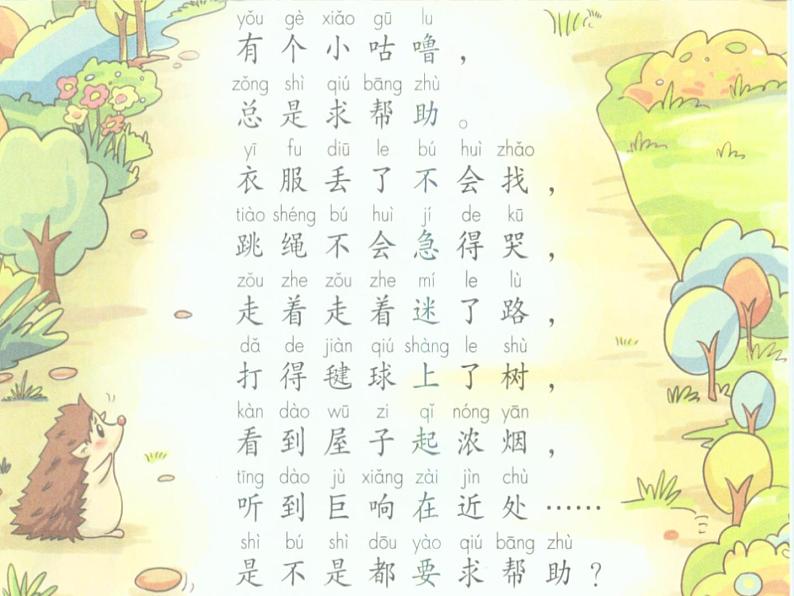 yǒu gè xiǎo gū lu
有个小咕噜，
zǒng shì qiú bāng zhù
总是求帮助。
yī fu diū le bú huì zhǎo
衣服丢了不会找，
tiào shéng bú huì jí de kū
跳绳不会急得哭，
zǒu zhe zǒu zhe mí le lù
走着走着迷了路，
dǎ de jiàn qiú shàng le shù
打得毽球上了树，
kàn dào wū zi qǐ nóng yān
看到屋子起浓烟，
tīng dào jù xiǎng zài jìn chù
听到巨响在近处……
shì bú shì dōu yào qiú bāng zhù
是不是都要求帮助？